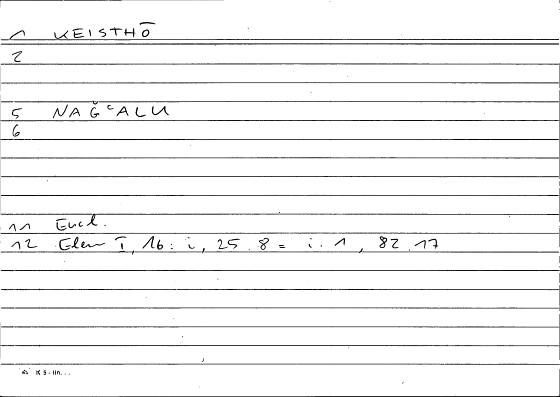 1 KEISTHŌ
2
5 NAǦʿALU
6
11 Eucl.
12 Elem I, 16: i, 25.8 = i.1, 82.17